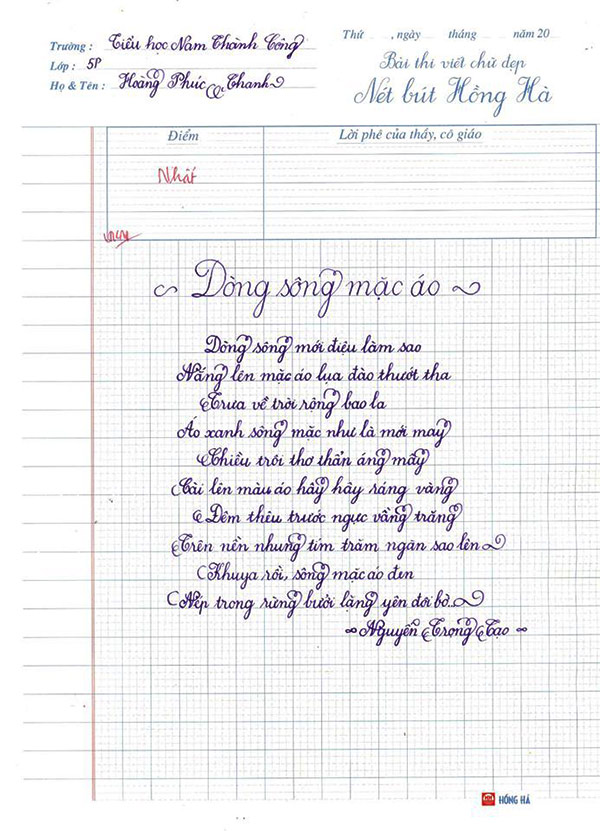 Trường : Tiểu học Nam Thành Công
Lớp : 5P
Họ & Tên : Hoàng Phúc Thanh
Thứ , ngày tháng năm 20
Bài thi viết chữ đẹp
Nét bút Hồng Hà
Điểm
Lời phê của thầy, cô giáo
Nhất
Dòng sông mặc áo
Dòng sông mới điệu làm sao
Nắng lên mặc áo lụa đào thướt tha
Trưa về trời rộng bao la
Áo xanh sông mặc như là mới may
Chiều trôi thơ thẩn áng mây
Cài lên màu áo hây hây ráng vàng
Đêm thêu trước ngực vầng trăng
Trên nền nhung tím trăm ngàn sao lên
Khuya rồi, sông mặc áo đen
Nép trong rừng bưởi lặng yên đôi bờ...
Nguyễn Trọng Tạo
HỒNG HÀ